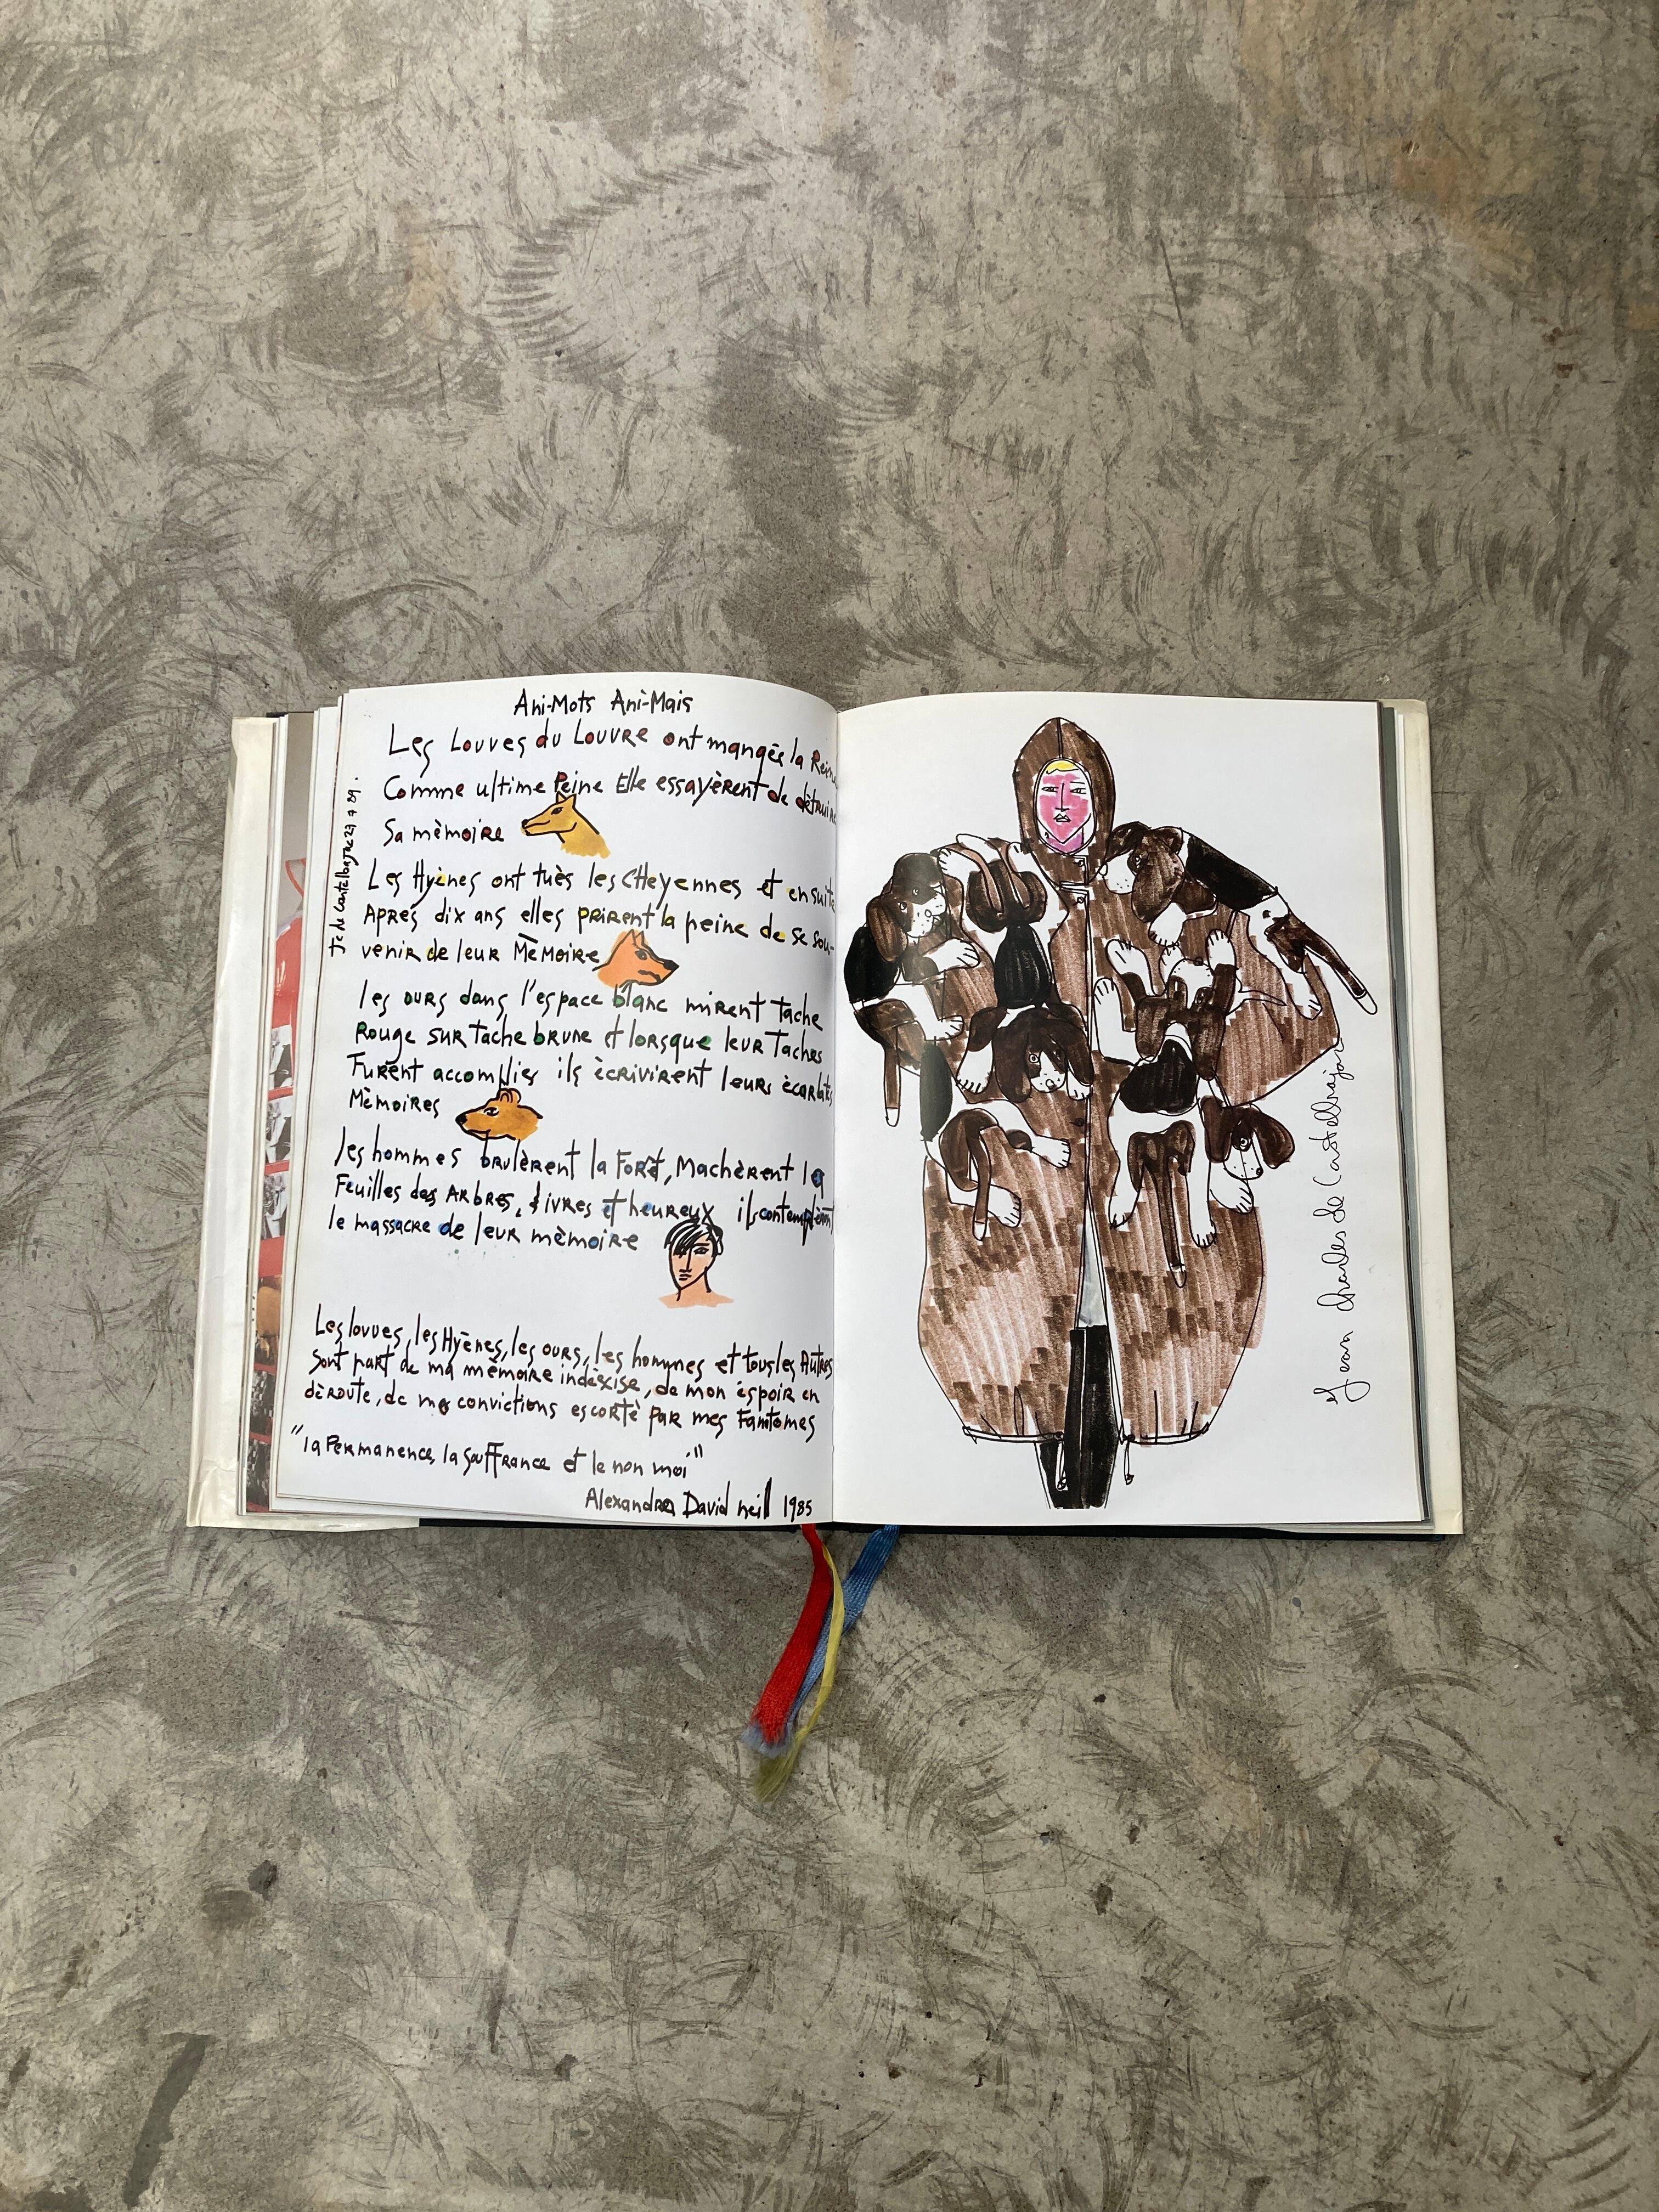 Ani-Mots Ani-Mais
Les Louves du Louvre ont mangées la Reine
Comme ultime Peine Elle essayèrent de détruire
Sa mèmoire
Les Hyènes ont tuès les CHeyennes et ensuite
Apres dix ans elles prirent la peine de se sou-
venir de leur MèMoire
les ours dans l'espace blanc mirent Tache
Rouge sur Tache brune et lorsque leur Taches
Furent accomplies ils ècrivirent leurs ècarlates
Mèmoires
les hommes brulèrent la Forêt, Machèrent les
Feuilles des Arbres, & ivres et heureux ils contemplèrent
le massacre de leur mèmoire
Les louves, les Hyènes, les ours, les hommes et tous les Autres
Sont part de ma mèmoire indèxise, de mon èspoir en
dèroute, de mes convictions escortè par mes Fantomes
"la Permanence, la SouFFrance et le non moi"
Alexandra David neill 1985
Jean Charles de Castelbajac